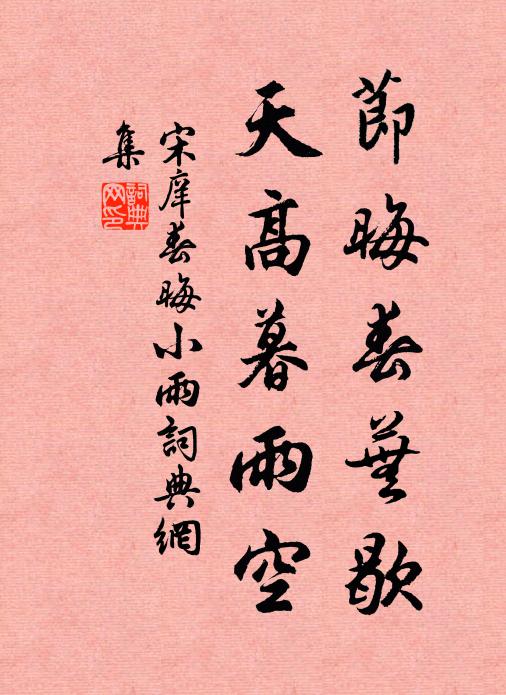 節晦春蕪歇
天高暮雨空
宋庠春晦小雨詞典網
集
詞典網印